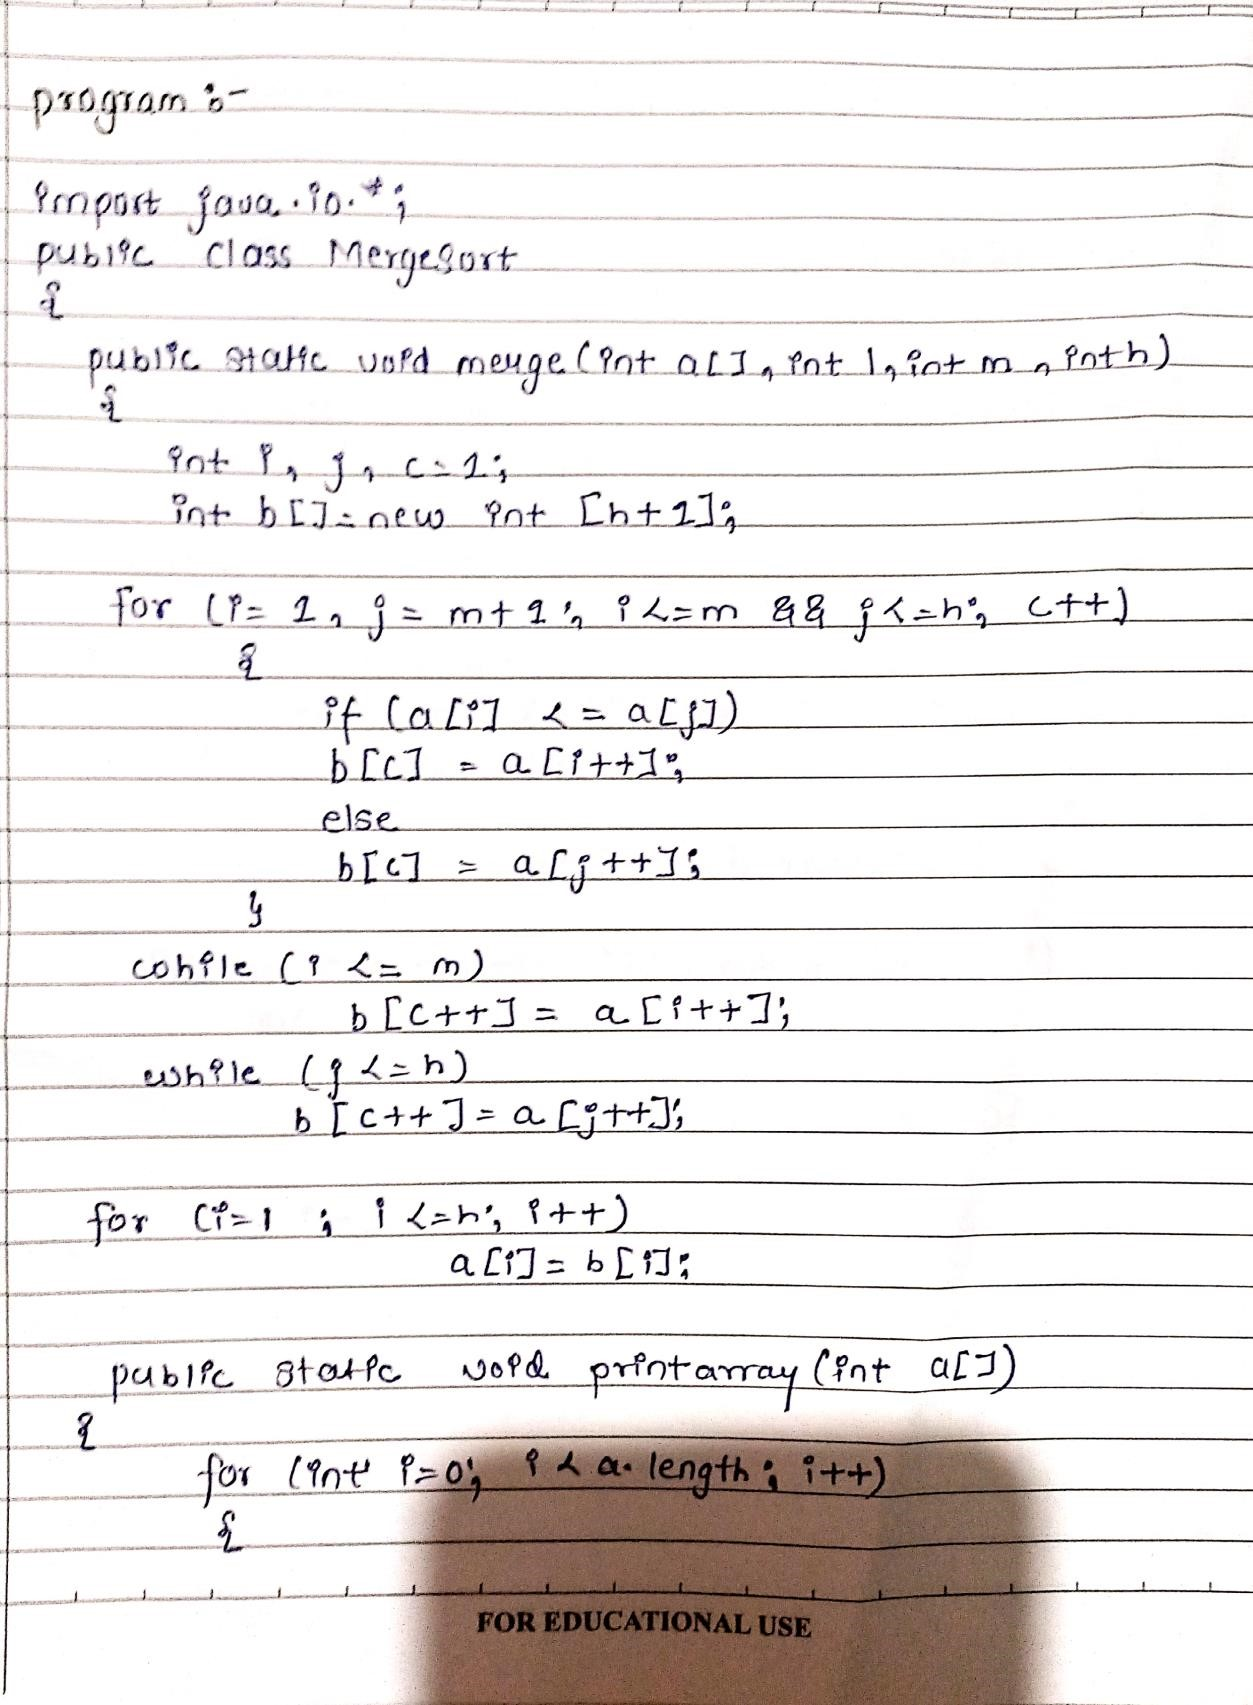 program :-
import java.io.*;
public class MergeSort
{
public static void merge (int a[], int l, int m, int h)
{
int i, j, c=1;
int b[]=new int [h+1];
for (i= 1, j = m+1; i<=m && j<=h; c++)
{
if (a[i] <= a[j])
b[c] = a[i++];
else
b[c] = a[j++];
}
while (i <= m)
b[c++] = a[i++];
while (j <=h)
b [c++] = a[j++];
for (i=1 ; i <=h; i++)
a[i] = b[i];
public static void printarray (int a[])
{
for (int i=0; i < a.length; i++)
{
FOR EDUCATIONAL USE